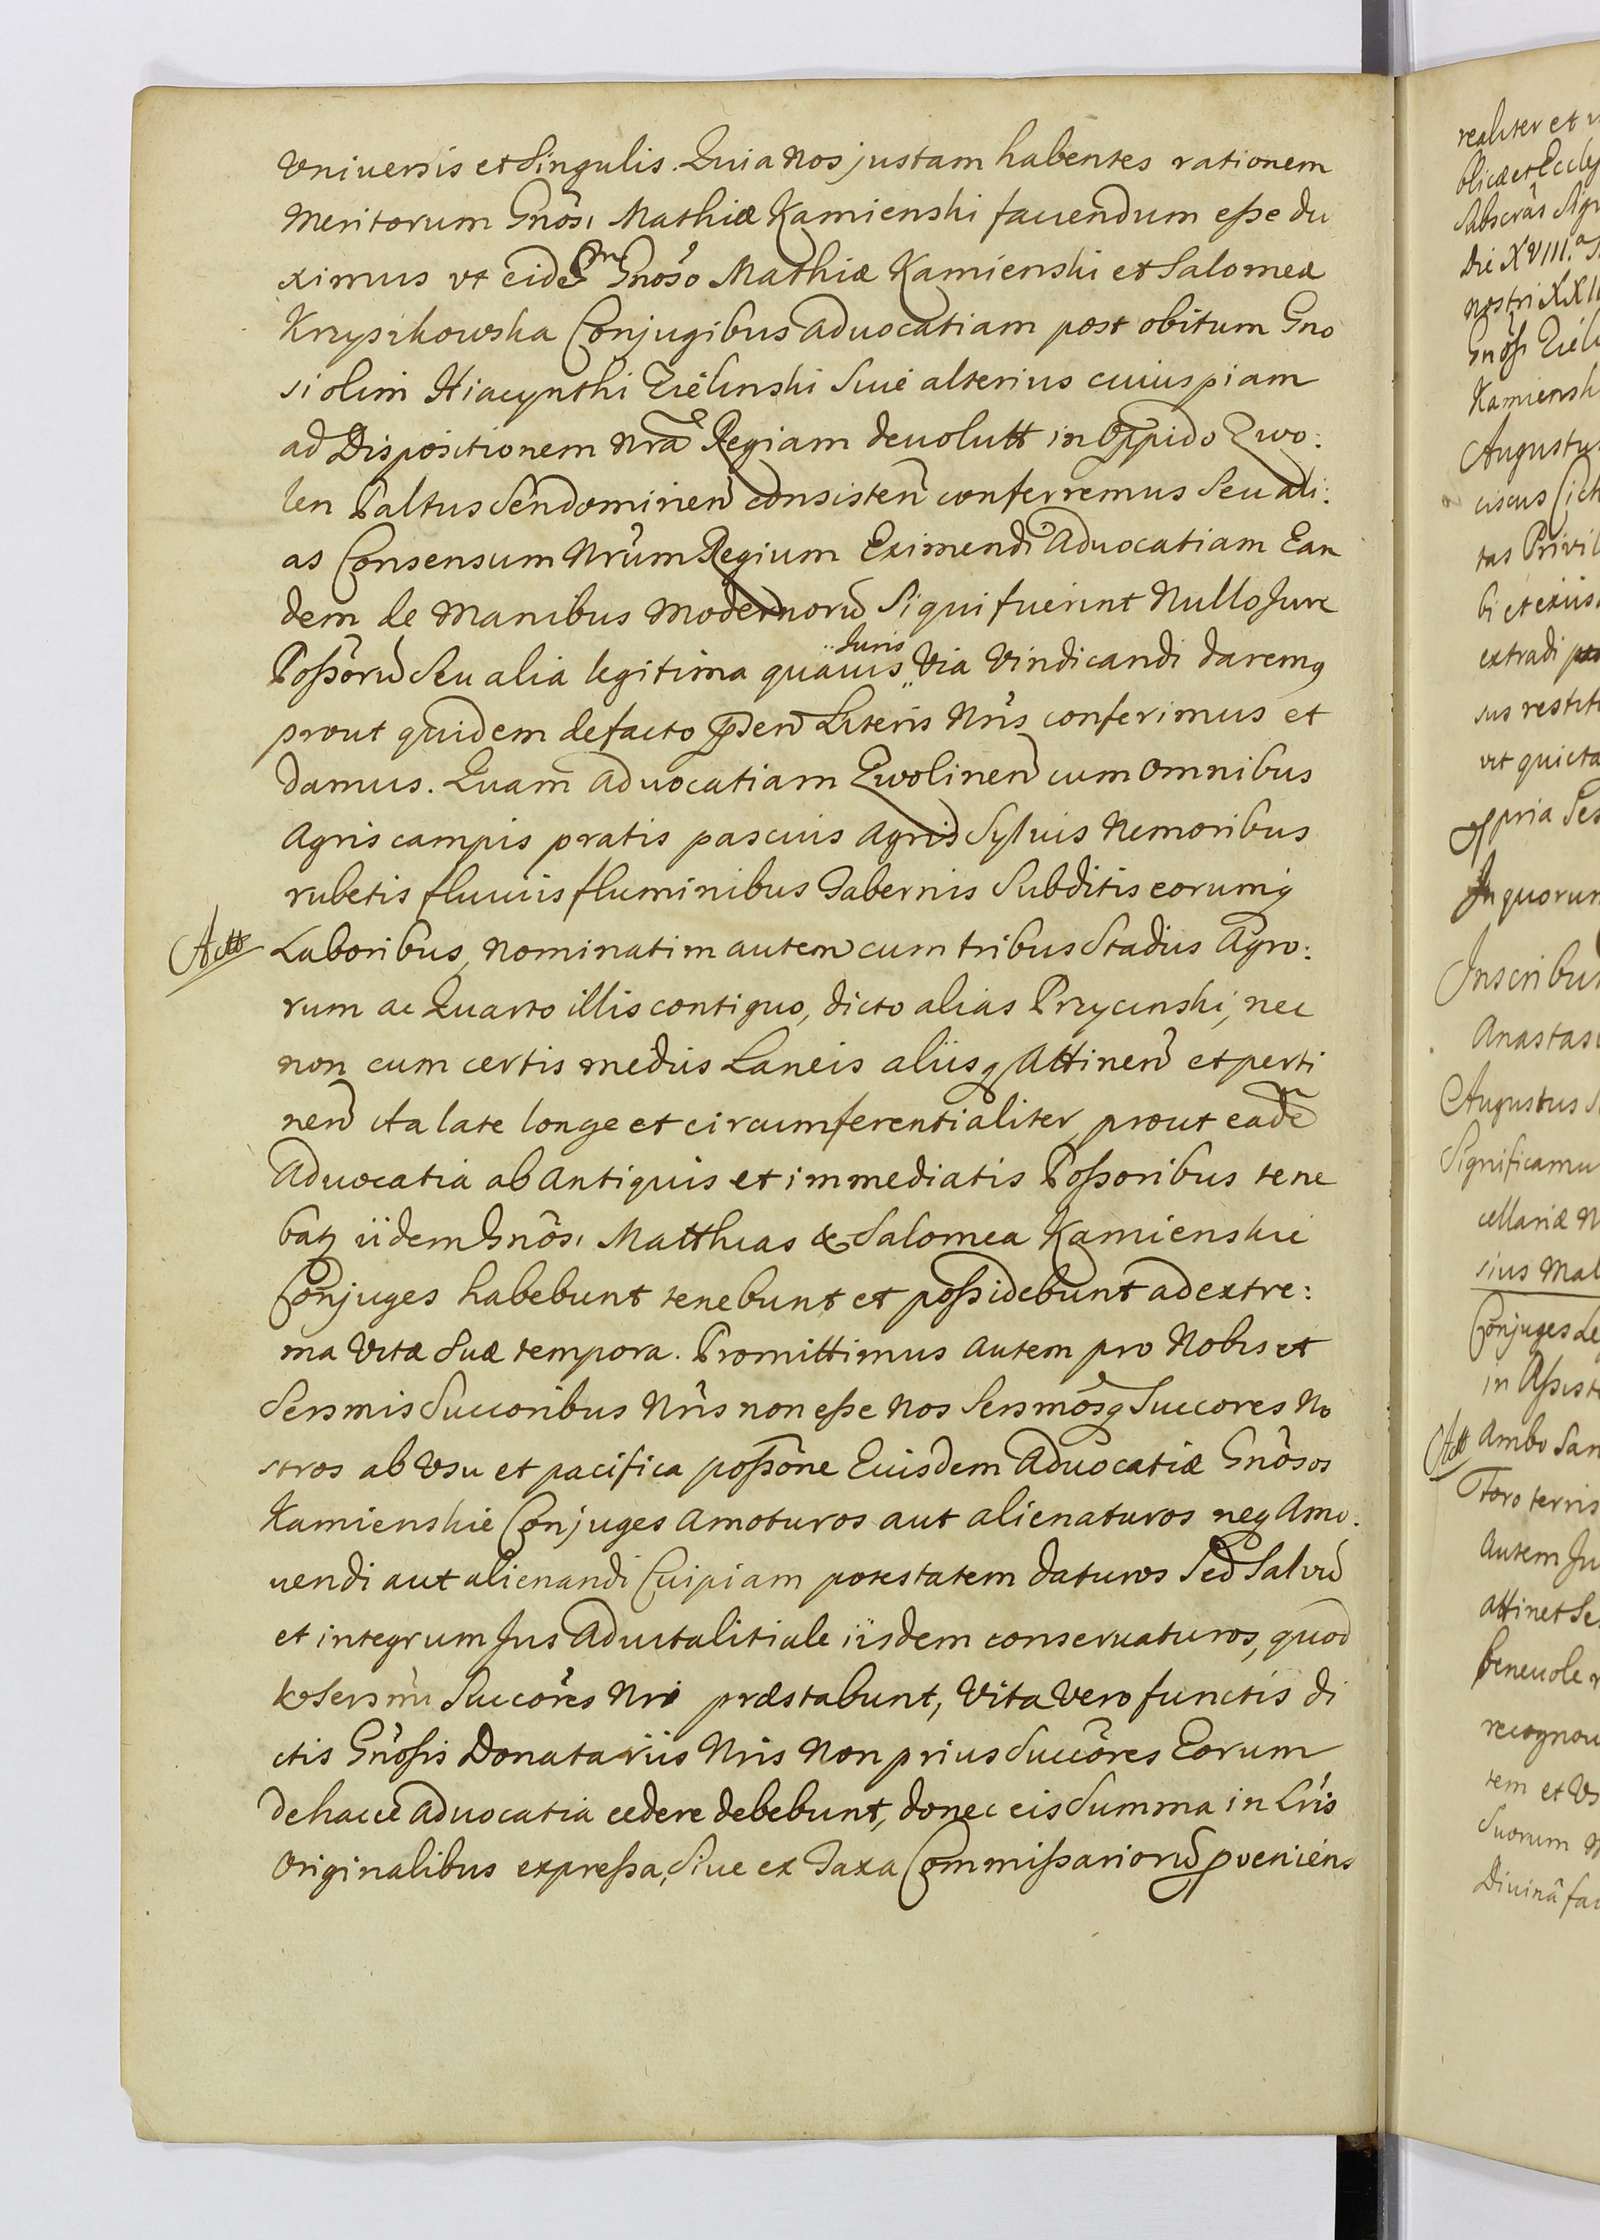 Vniuersis et Singulis. Quia Nos justam habentes rationem
Meritorum Gnosi Mathiæ Kamienski fauendum esse du
ximus vt eidem Gnoso Mathiæ Kamienski et Salomeæ
Krzyszkowska Conjugibus Aduocatiam post obitum Gno
si olim Hiacynthi Zielinski Siue alterius cuiuspiam
ad Dispositionem Nrã Regiam deuolutt in Oppido Zwo:
len Paltus Sendomirien consisten conferremus Seu ali:
as Consensum Nrũm Regium Eximendi Aduocatiam Ean
dem de Manibus Modernorũ Si qui fuerint Nullo Jure
Poßorũ Seu alia legitima quauis Juris Via Vindicandi daremq
prout quidem defacto pñsen Literis Nris conferimus et
damus. Quam Aduocatiam Zwolinen cum Omnibus
Agris campis pratis pascuis Agris Syluis Nemoribus
rubetis fluuiis fluminibus Tabernis Subditis eorumq
Actt Laboribus, Nominatim autem cum tribus Stadiis Agro:
rum ac Quarto illis contiguo, dicto alias Przycinski, nec
non cum certis mediis Laneis aliisq Attinen et perti
nen ita late longe et circumferentialiter prout eadẽ
Aduocatia ab Antiquis et immediatis Poßoribus tene
batz iidem Gnosi Matthias & Salomea Kamienskie
Conjuges habebunt tenebunt et poßidebunt ad extre:
ma Vitæ Suæ tempora. Promittimus Autem pro Nobis et
Sersmis Succoribus Nris non eße Nos Sersmosq Succores No
stros ab Vsu et pacifica poßone Euisdem Aduocatiæ Gnosos
Kamienskie Conjuges Amoturos aut alienaturos neq Amo:
uendi aut alienandi Cuipiam potestatem daturos Sed Saluũ
et integrum Jus Aduitalitiale iisdem conseruaturos, quod
& Sersmi Succores Nri præstabunt, Vita Vero functis di
ctis Gnoßis Donatariis Nris Non prius Succores Eorum
de hacce Aduocatia cedere debebunt, donec eis Summa in Lris
Originalibus expreßa, Siue ex Taxa Commißariorũ pueniens
realiter et
blicæ et
Die XVIII.
nostri
Kamiensk
Augustus
ciscus
tas Privil
extradi
sus restit
vt quieta
ppria Ses
In quorum
Inscribun
Anastas
Augustus
Significamu
cellariæ N
sius Mal
Conjuges
in Aßist
Actt Ambo San
Toro terris
Autem Ju
attinet Se
beneuole
recognou
tem et Vs
Suorum
Diuinâ fau